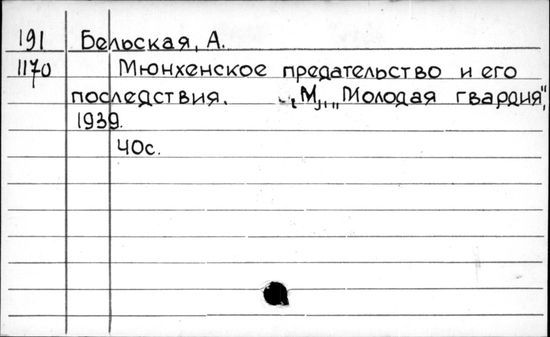 191 Бельская, А.
1170 Мюнхенское предательство и его
последствия. М., „Молодая гвардия",
1939.
40с.